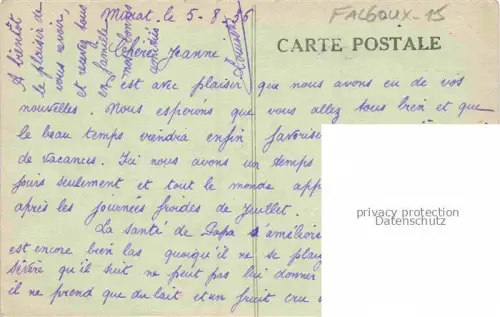 Murat. le 5-8-36
FALGOUX-15
CARTE POSTALE
Chère Jeanne
C'est avec plaisir que nous avons eu de vos
nouvelles. Nous espérons que vous allez tous bien et que
le beau temps viendra enfin favoriser
de vacances. Ici nous avons un temps
jours seulement et tout le monde app
après les journées froides de Juillet.
La santé de Papa s'améliore
est encore bien las quoiqu'il ne se plai
sévère qu'il suit ne peut pas lui donner
il ne prend que du lait et un fruit cru
A bientôt
le plaisir de
vous revoir,
et recevez tous
en famille
nos bonnes
amitiés
Louison
privacy protection
Datenschutz